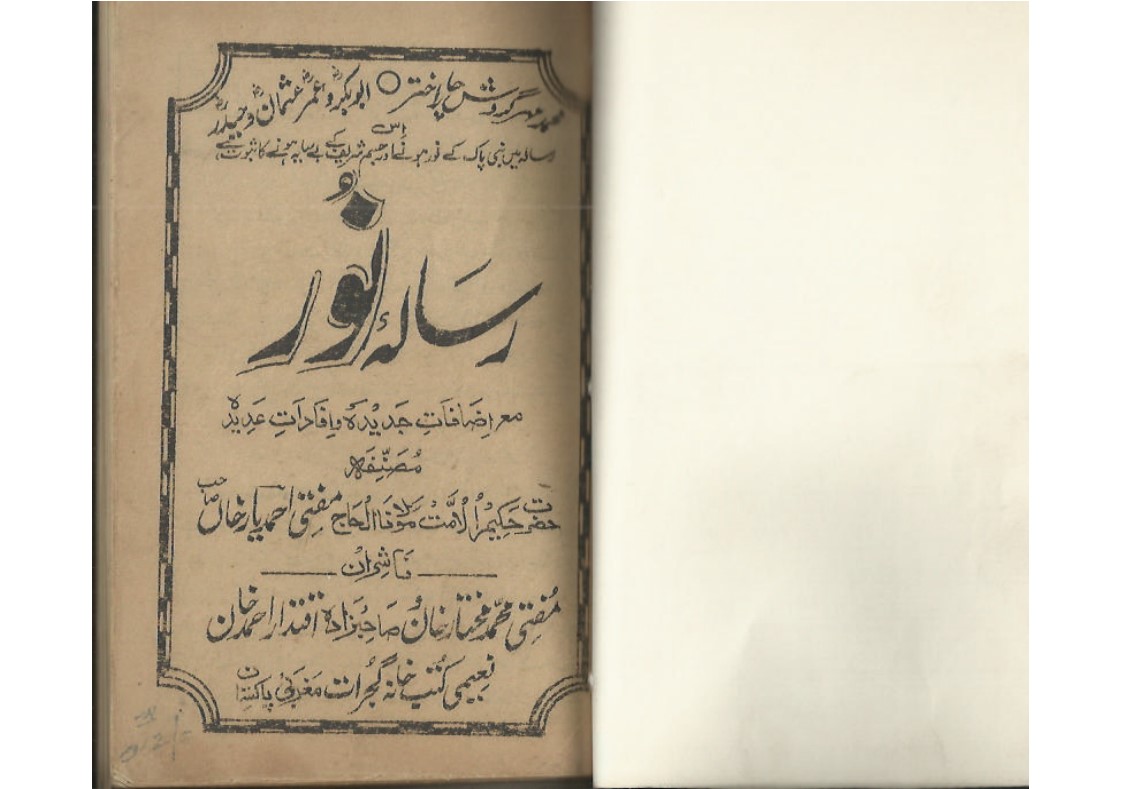 محمد مہر گردوش چار اختر ○ ابوبکرؓ و عمرؓ عثمانؓ و حیدرؓ
رسالہ میں نبی پاک کے نور ہونے اور اس جسم شریف کے بے سایہ ہونے کا ثبوت ہے
رسالۂ نُور
مع اِضَافَاتِ جَدِیْدَہ وَاِفَادَاتِ عَدِیدہ
مُصَنِّفہ
حضرت حَکِیْمُ الْاُمَّتْ مَولٰنا الْحَاج مفتی احمد یار خاں صاحب
نَاشِرانْ
مُفتی محمّد مختار خانْ صَاحِبزادہ اقتدار احمد خان
نعِیمی کُتب خَانہ گُجرات مَغربی پاکستان